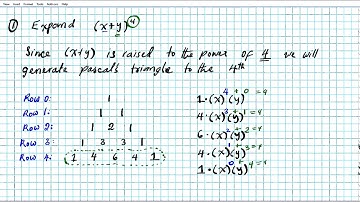 ① Expand (x+y)^4
Since (x+y) is raised to the power of 4 we will
generate pascals triangle to the 4th
Row 0: 1
Row 1: 1 1
Row 2: 1 2 1
Row 3: 1 3 3 1
Row 4: 1 4 6 4 1
1·(x)^4(y)^0 4+0=4
4·(x)^3(y)^1 3+1=4
6·(x)^2(y)^2 2+2=4
4·(x)^1(y)^3 1+3=4
1·(x)^0(y)^4 0+4=4